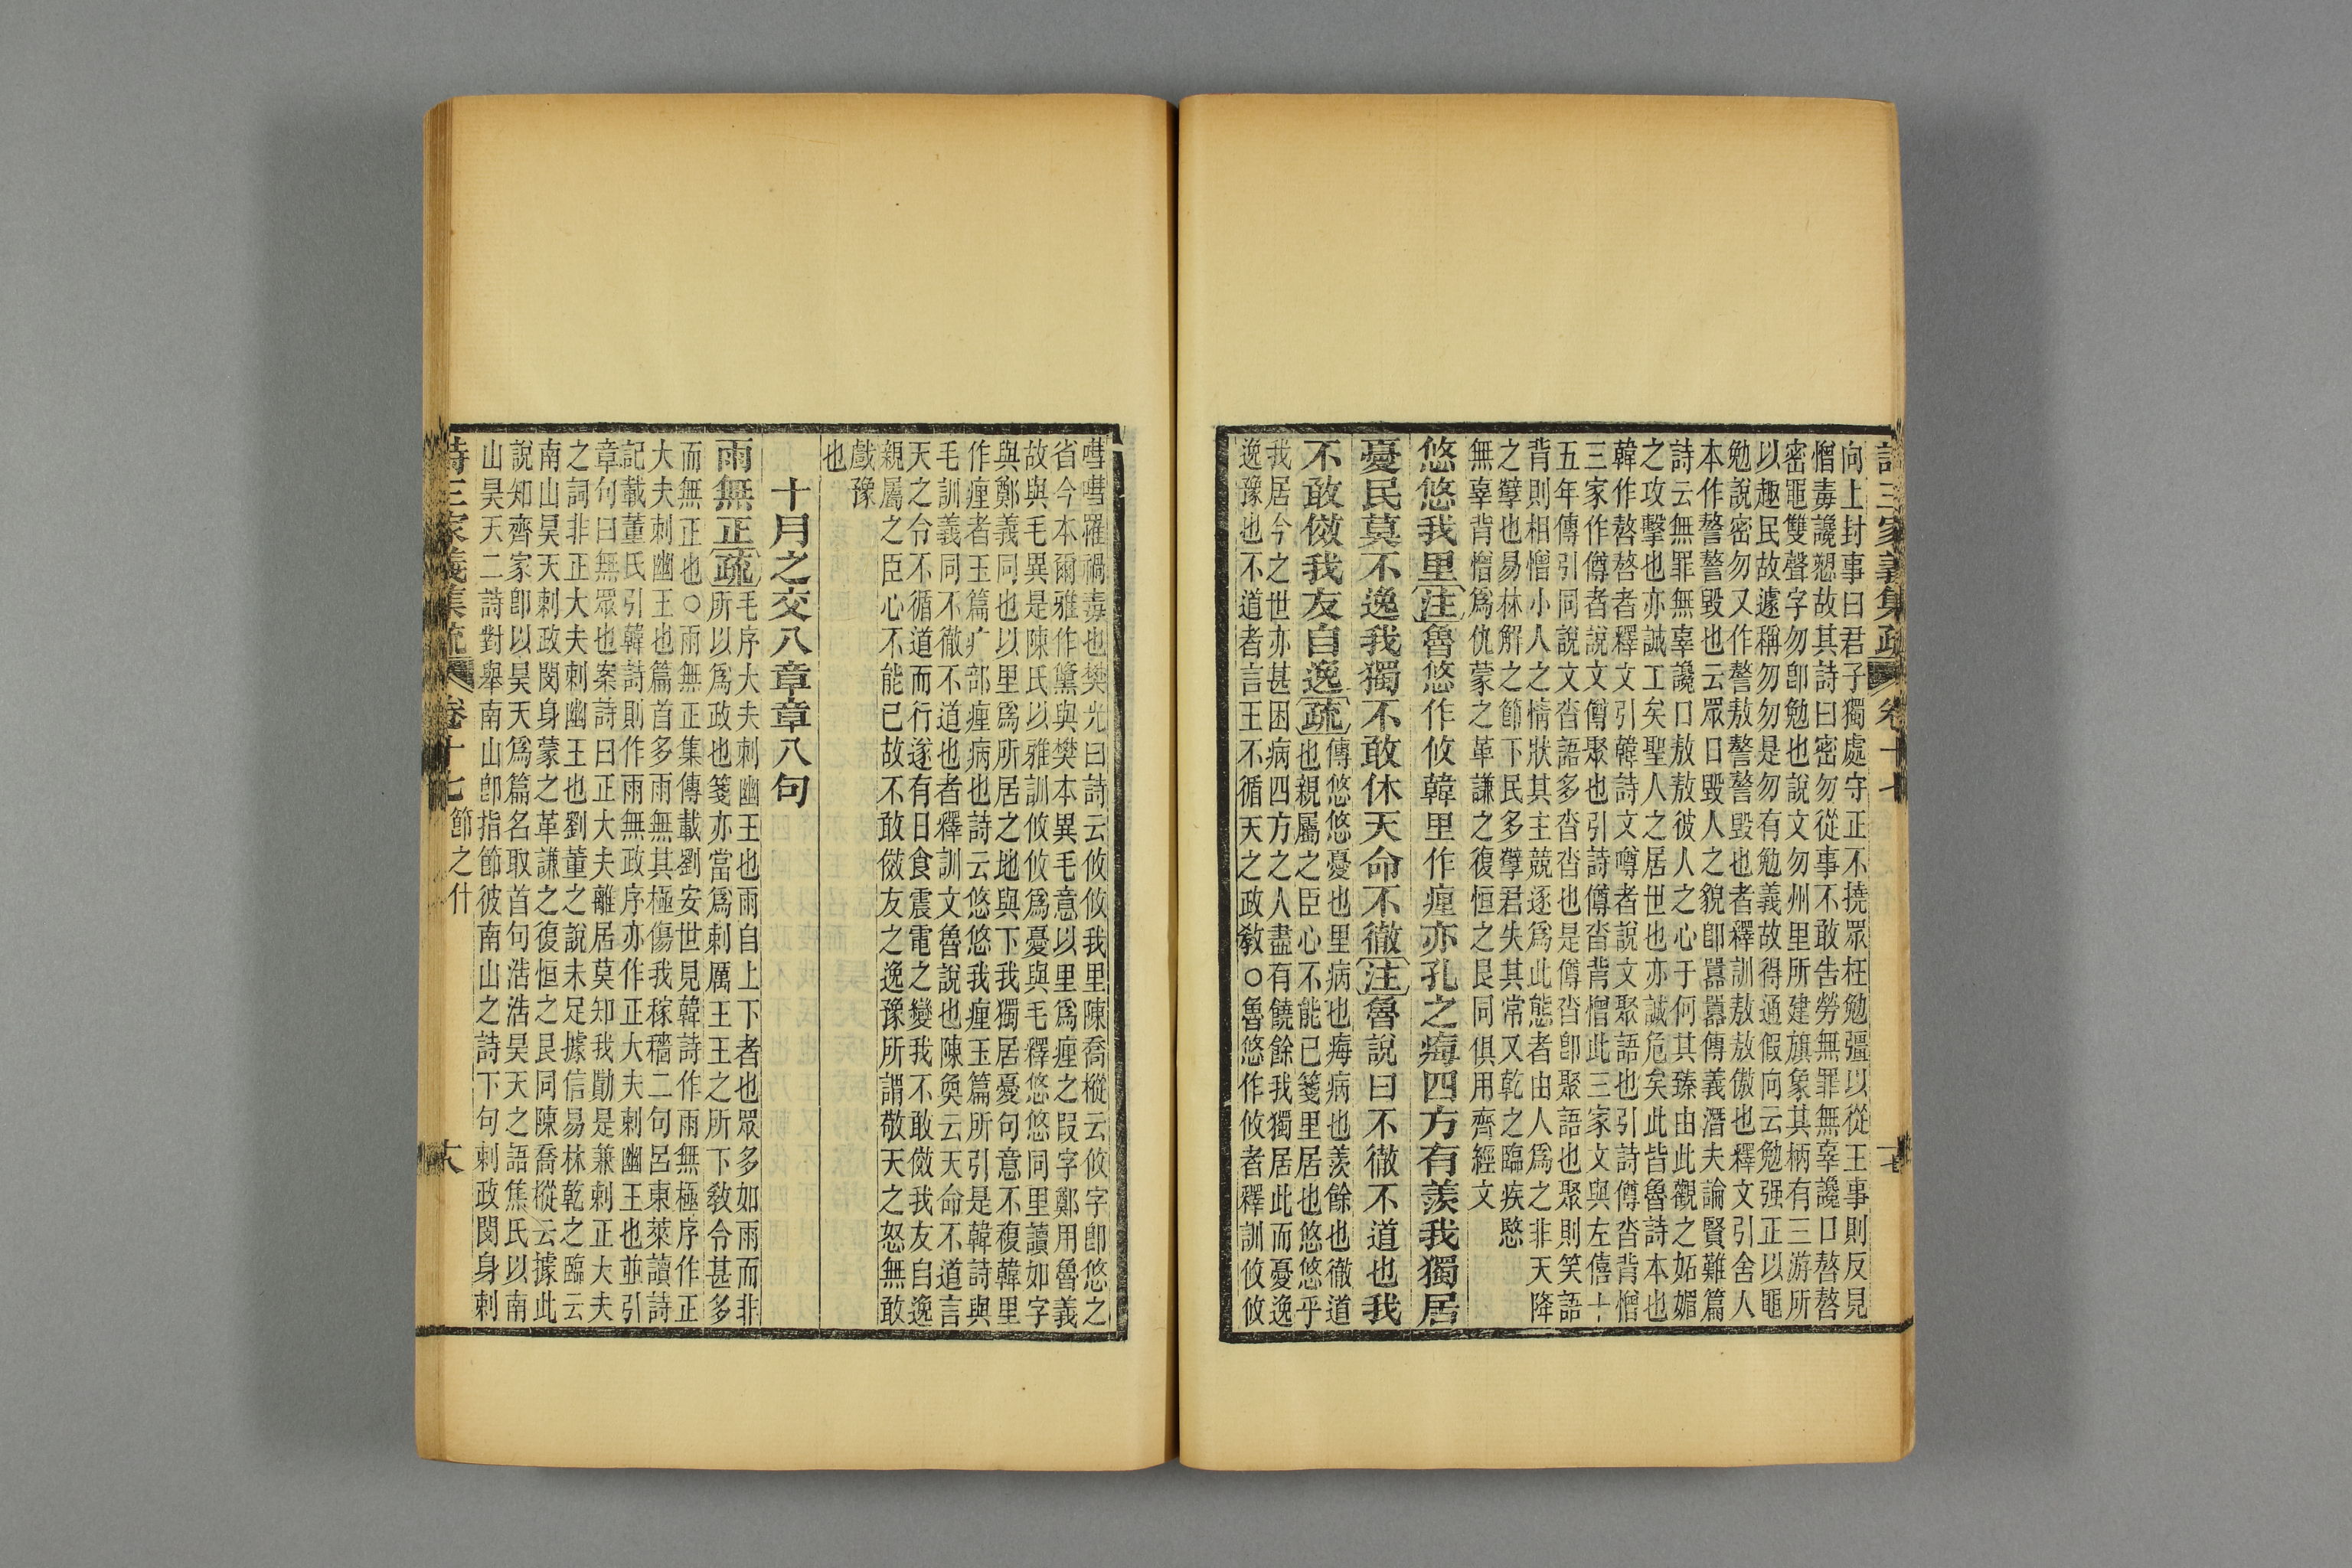 詩三家義集疏 卷十七 十七
向上封事曰君子獨處守正不撓眾枉勉彊以從王事則反見
憎毒讒愬故其詩曰密勿從事不敢告勞無罪無辜讒口嗸嗸
密黽雙聲字勿卽勉也說文勿州里所建旗象其柄有三游所
以趣民故遽稱勿勿是勿有勉義故得通假向云勉强正以黽
勉說密勿又作謷敖謷謷毀也者釋訓敖敖傲也釋文引舍人
本作謷謷毀也云眾口毀人之貌卽嚻嚻傳義潛夫論賢難篇
詩云無罪無辜讒口敖敖彼人之心于何其臻由此觀之妬媚
之攻擊也亦誠工矣聖人之居世也亦誠危矣此皆魯詩本也
韓作嗸嗸者釋文引韓詩文噂者說文聚語也引詩僔沓背憎
三家作僔者說文僔聚也引詩僔沓背憎此三家文與左僖十
五年傳引同說文沓語多沓沓也是僔沓卽聚語也聚則笑語
背則相憎小人之情狀其主競逐爲此態者由人爲之非天降
之孽也易林解之節下民多孽君失其常又乾之臨疾愍
無辜背憎爲仇蒙之革謙之復恒之艮同俱用齊經文
悠悠我里注魯悠作攸韓里作瘇亦孔之痗四方有羨我獨居
憂民莫不逸我獨不敢休天命不徹注魯說曰不徹不道也我
不敢傚我友自逸疏傳悠悠憂也里病也痗病也羨餘也徹道
也親屬之臣心不能已箋里居也悠悠乎
我居今之世亦甚困病四方之人盡有饒餘我獨居此而憂逸
逸豫也不道者言王不循天之政敎○魯悠作攸者釋訓攸攸
嘒嘒罹禍毒也樊光曰詩云攸攸我里陳喬樅云攸字卽悠之
省今本爾雅作儵與樊本異毛意以里爲瘇之叚字鄭用魯義
故與毛異是陳氏以雅訓攸攸爲憂與毛釋悠悠同里讀如字
與鄭義同也以里爲所居之地與下我獨居憂句意不複韓里
作瘇者玉篇疒部瘇病也詩云悠悠我瘇玉篇所引是韓詩與
毛訓義同不徹不道也者釋訓文魯說也陳奐云天命不道言
天之令不循道而行遂有日食震電之變我不敢傚我友自逸
親屬之臣心不能已故不敢傚友之逸豫所謂敬天之怒無敢
戲豫
也
十月之交八章章八句
雨無正疏毛序大夫刺幽王也雨自上下者也眾多如雨而非
所以爲政也箋亦當爲刺厲王王之所下敎令甚多
而無正也○雨無正集傳載劉安世見韓詩作雨無極序作正
大夫刺幽王也篇首多雨無其極傷我稼穡二句呂東萊讀詩
記載董氏引韓詩則作雨無政序亦作正大夫刺幽王也並引
章句曰無眾也案詩曰正大夫離居莫知我勩是兼刺正大夫
之詞非正大夫刺幽王也劉董之說未足據信易林乾之臨云
南山昊天刺政閔身蒙之革謙之復恒之艮同陳喬樅云據此
說知齊家卽以昊天爲篇名取首句浩浩昊天之語焦氏以南
山昊天二詩對舉南山卽指節彼南山之詩下句刺政閔身刺
詩三家義集疏 卷十七 節之什 十八